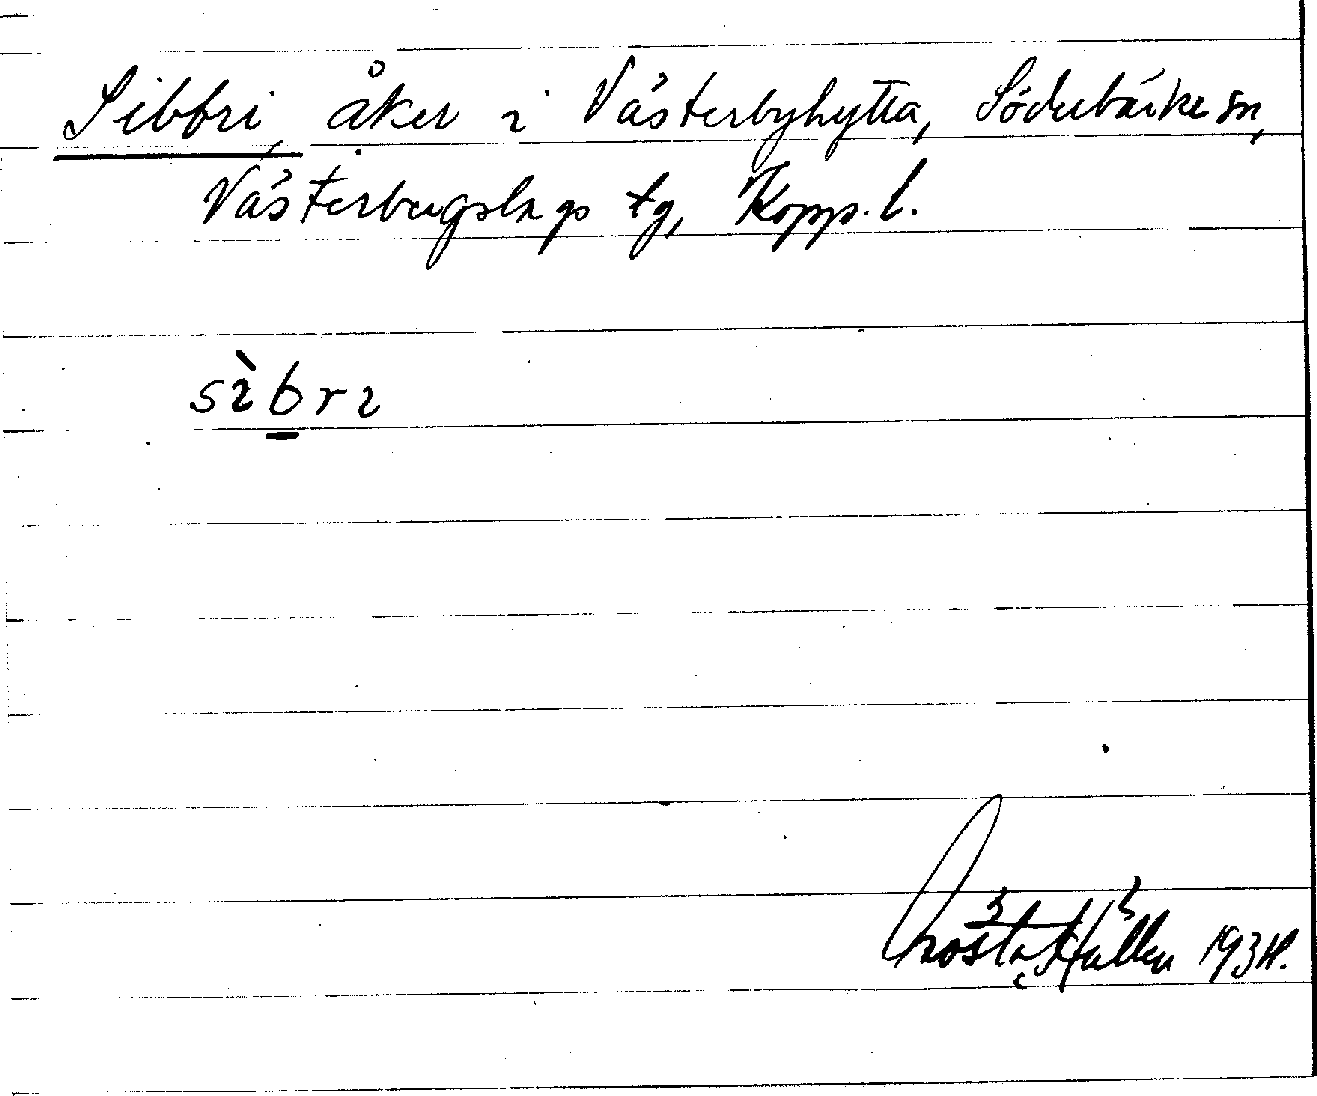 Sibbri, åker i Västerbyhytta, Söderbärke sn,
Västerbergslags tg, Kopp. l.
sìb̲ri
Gösta Källen 1934.